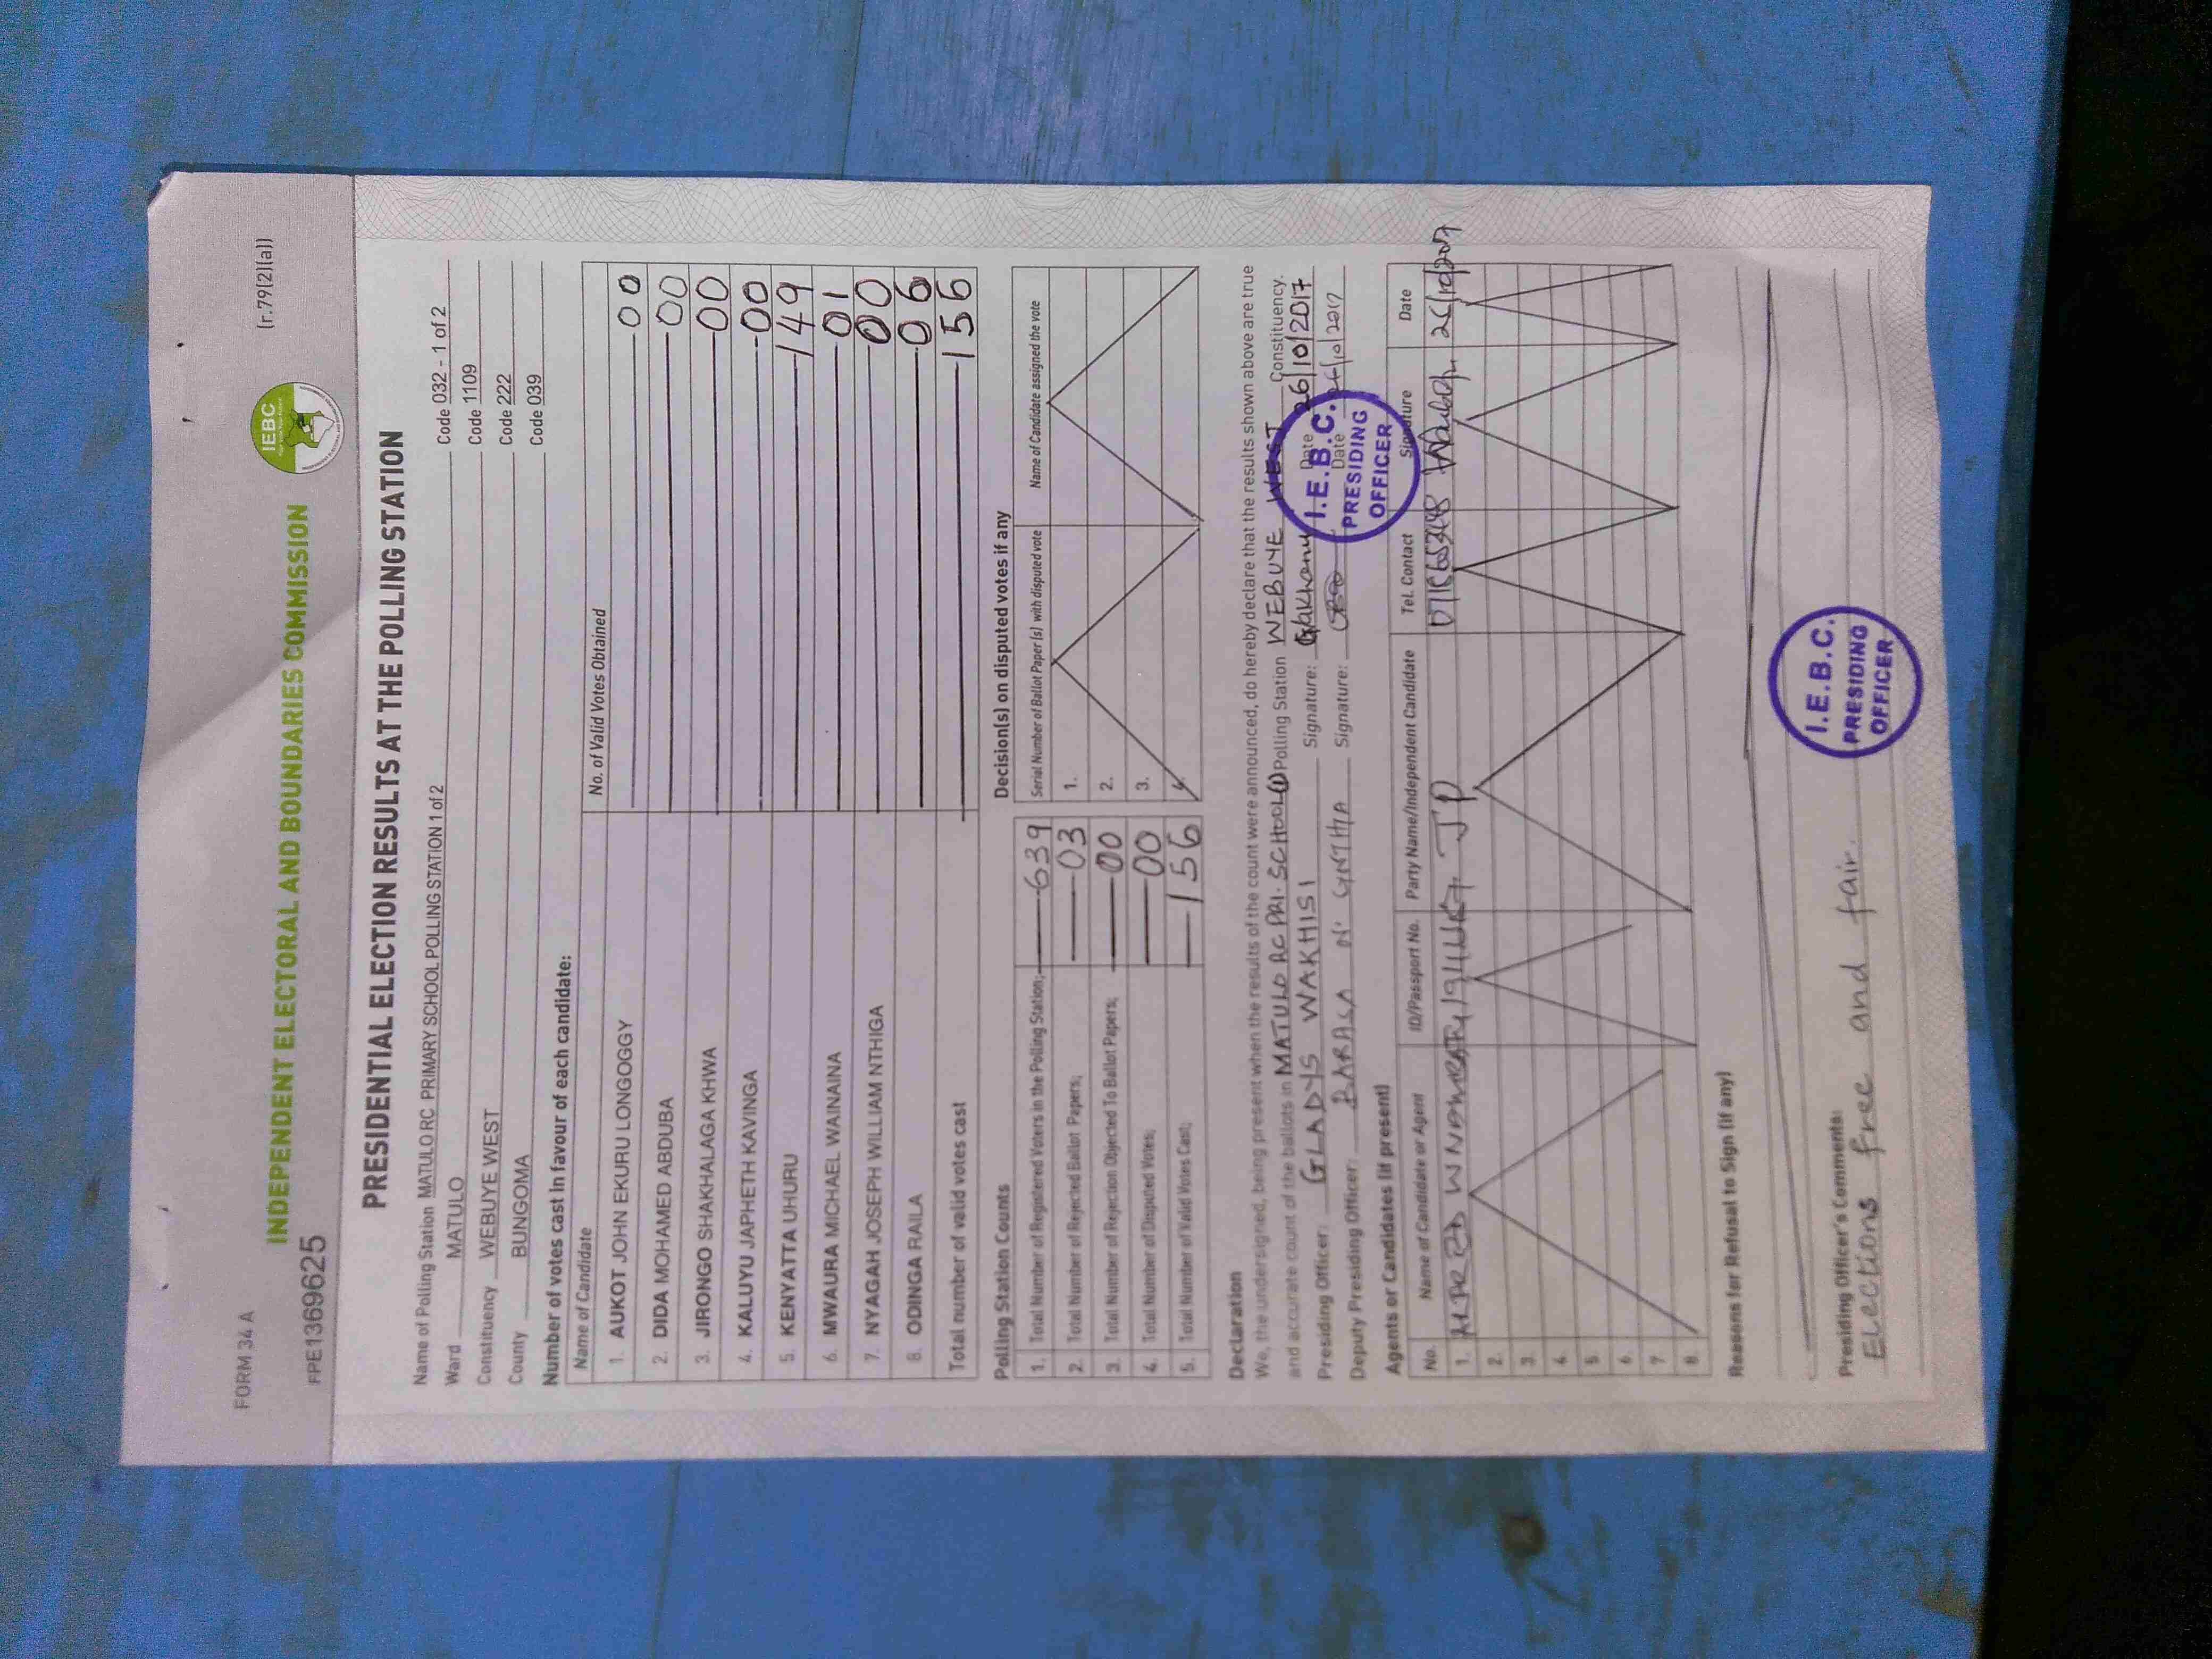 FORM 34 A
(r.79(2)(a))
IEBC
INDEPENDENT ELECTORAL AND BOUNDARIES COMMISSION
FPE1369625
PRESIDENTIAL ELECTION RESULTS AT THE POLLING STATION
Name of Polling Station MATULO RC PRIMARY SCHOOL POLLING STATION 1 of 2 Code 032 - 1 of 2
Ward MATULO Code 1109
Constituency WEBUYE WEST Code 222
County BUNGOMA Code 039
Number of votes cast in favour of each candidate:
Name of Candidate No. of Valid Votes Obtained
1. AUKOT JOHN EKURU LONGOGGY 00
2. DIDA MOHAMED ABDUBA 00
3. JIRONGO SHAKHALAGA KHWA 00
4. KALUYU JAPHETH KAVINGA 00
5. KENYATTA UHURU 149
6. MWAURA MICHAEL WAINAINA 01
7. NYAGAH JOSEPH WILLIAM NTHIGA 00
8. ODINGA RAILA 06
Total number of valid votes cast 156
Polling Station Counts
1. Total Number of Registered Voters in the Polling Station; 639
2. Total Number of Rejected Ballot Papers; 03
3. Total Number of Rejection Objected To Ballot Papers; 00
4. Total Number of Disputed Votes; 00
5. Total Number of Valid Votes Cast; 156
Decision(s) on disputed votes if any
Serial Number of Ballot Paper (s) with disputed vote Name of Candidate assigned the vote
1.
2.
3.
4.
Declaration
We, the undersigned, being present when the results of the count were announced, do hereby declare that the results shown above are true
and accurate count of the ballots in MATULO RC PRI. SCHOOL (1) Polling Station WEBUYE WEST Constituency.
Presiding Officer: GLADYS WAKHISI Signature: Date 26/10/2017
Deputy Presiding Officer: BARASA N. CYNTHIA Signature: Date 26/10/2017
I.E.B.C.
PRESIDING
OFFICER
Agents or Candidates (if present)
No. Name of Candidate or Agent ID/Passport No. Party Name/Independent Candidate Tel. Contact Signature Date
1. JP 26/10/2017
2.
3.
4.
5.
6.
7.
8.
Reasons for Refusal to Sign (if any)
Presiding Officer's Comments:
Elections free and fair.
I.E.B.C.
PRESIDING
OFFICER